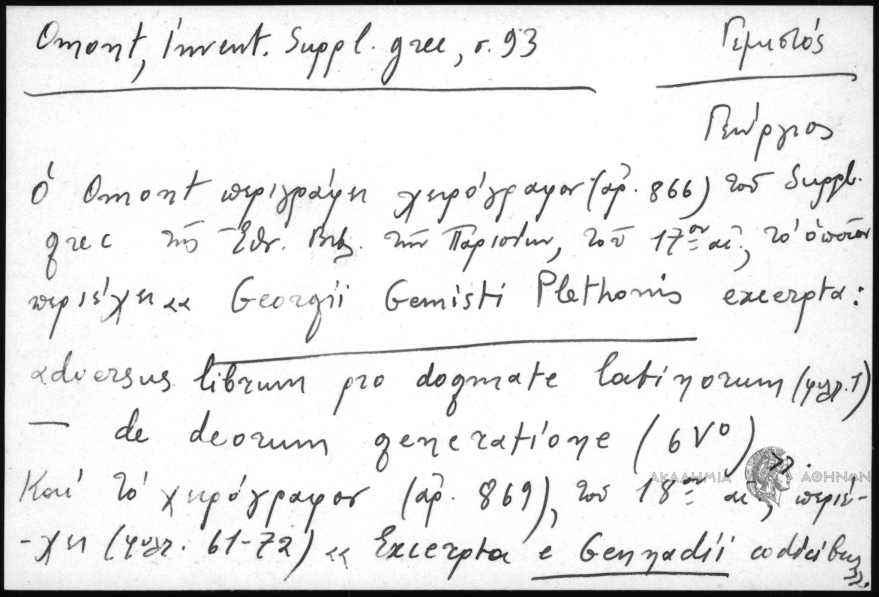 Omont, Invent. Suppl. grec, σ. 93
Γεμιστός
Γεώργιος
Ὁ Omont περιγράφει χειρόγραφον (ἀρ. 866) τοῦ Suppl.
grec τῆς Ἐθν. Βιβ. τῶν Παρισίων, τοῦ 17ου αἰ., τὸ ὁποῖον
περιέχει « Georgii Gemisti Plethonis excerpta:
adversus librum pro dogmate latinorum (φυλ. 1)
— de deorum generatione (6v⁰) ».
Καί τό χειρόγραφον (ἀρ. 869), τοῦ 18ου αἰ., περιέ-
-χει (φυλ. 61-72) « Excerpta e Gennadii codicibus
».
ΑΚΑΔΗΜΙΑ ΑΘΗΝΩΝ